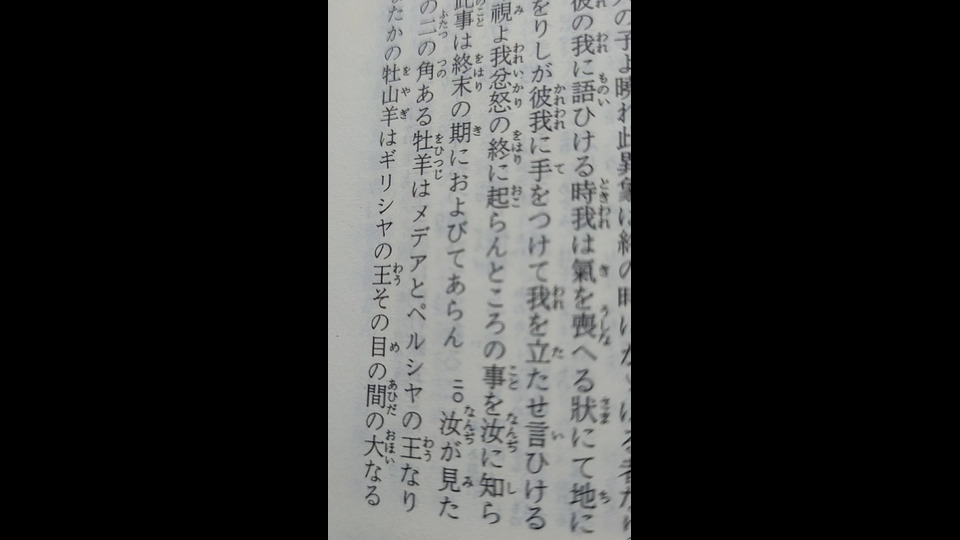 の子よ曉れ此異象は終の時にかゝはる者な
彼の我に語ひける時我は氣を喪へる狀にて地に
をりしが彼我に手をつけて我を立たせ言ひける
視よ我忿怒の終に起らんところの事を汝に知ら
此事は終末の期におよびてあらん 二〇 汝が見た
の二の角ある牡羊はメデアとペルシヤの王なり
たかの牡山羊はギリシヤの王その目の間の大なる